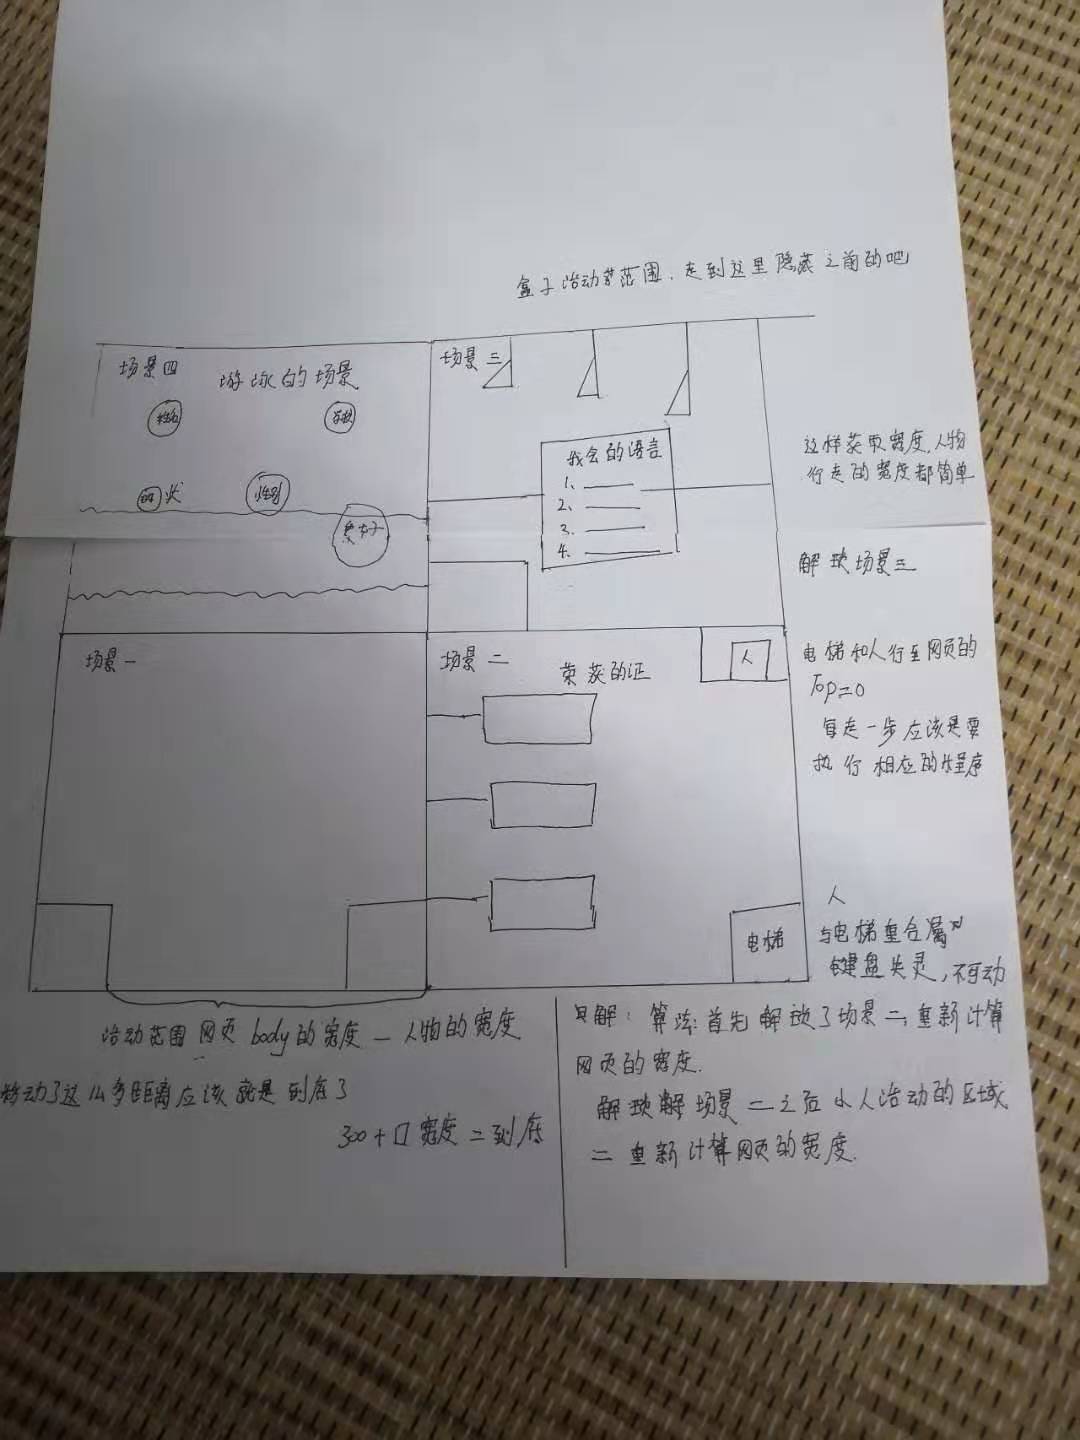 盒子活动范围.走到这里隐藏之前的吧
场景四
游泳的场景
姓名
性别
场景三
我会的语言
1、
2、
3、
4、
这样获取宽度,人物
行走的宽度都简单
解锁场景三
场景一
场景二
荣获的证
人
电梯和人行至网页的
Top=0
每走一步应该是要
执行相应的程序
电梯
人
与电梯重合属
键盘失灵,不可动
活动范围网页body的宽度—人物的宽度
移动了这么多距离应该就是到底了
300+口宽度=到底
解:算法:首先解放了场景二,重新计算
网页的宽度.
解锁解场景二之后小人活动的区域
=重新计算网页的宽度.